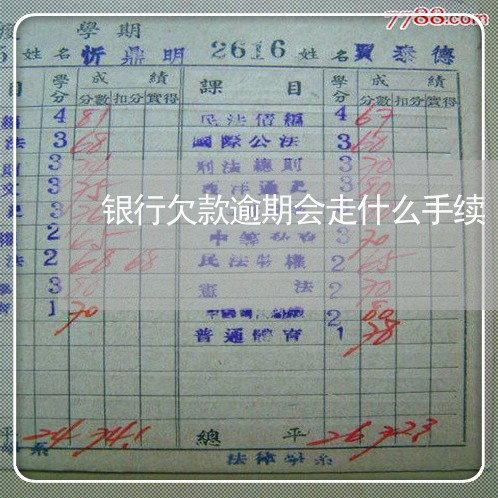 7788.com
學期
姓名 忻鼎明 2616 姓名 賈泰德
目 學分 成績 課目 學分 成績
分數 扣分 實得 分數 扣分 實得
4 81 民法債編 4 67
法 3 68 國際公法 3 60
3 刑法總則 3 70
3 75 西洋通史 3 80
银行欠款逾期会走什么手续
2 65 3 70
法 2 68 68 民法物權 2 65
3 80 憲法 2 70
1 70 2 80
普通體育 1 78
平 24 74.1 總平 26 72.3
系 法律學系